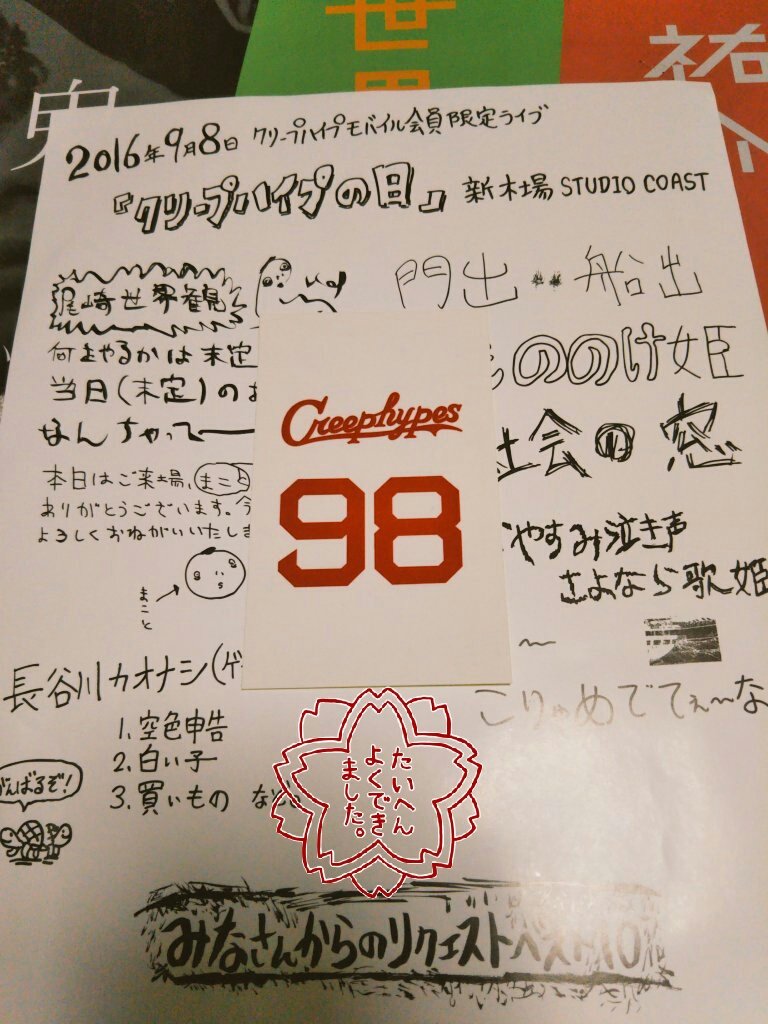 鬼
世界
祐介
2016年9月8日 クリープハイプモバイル会員限定ライブ
『クリープハイプの日』 新木場 STUDIO COAST
尾崎世界観
門出 船出
何をやるかは未定
もののけ姫
当日(未定)のお
なんちゃってー
社会の窓
本日はご来場、まこと
ありがとうございます。今
よろしくおねがいいたしま
まこと
おやすみ泣き声
さよなら歌姫
〜
Creephypes
98
長谷川カオナシ(ゲ
こりゃめでてぇ〜な
1. 空色申告
2. 白い子
3. 買いもの など
がんばるぞ!
たいへん
よくでき
ました。
みなさんからのリクエストベスト10